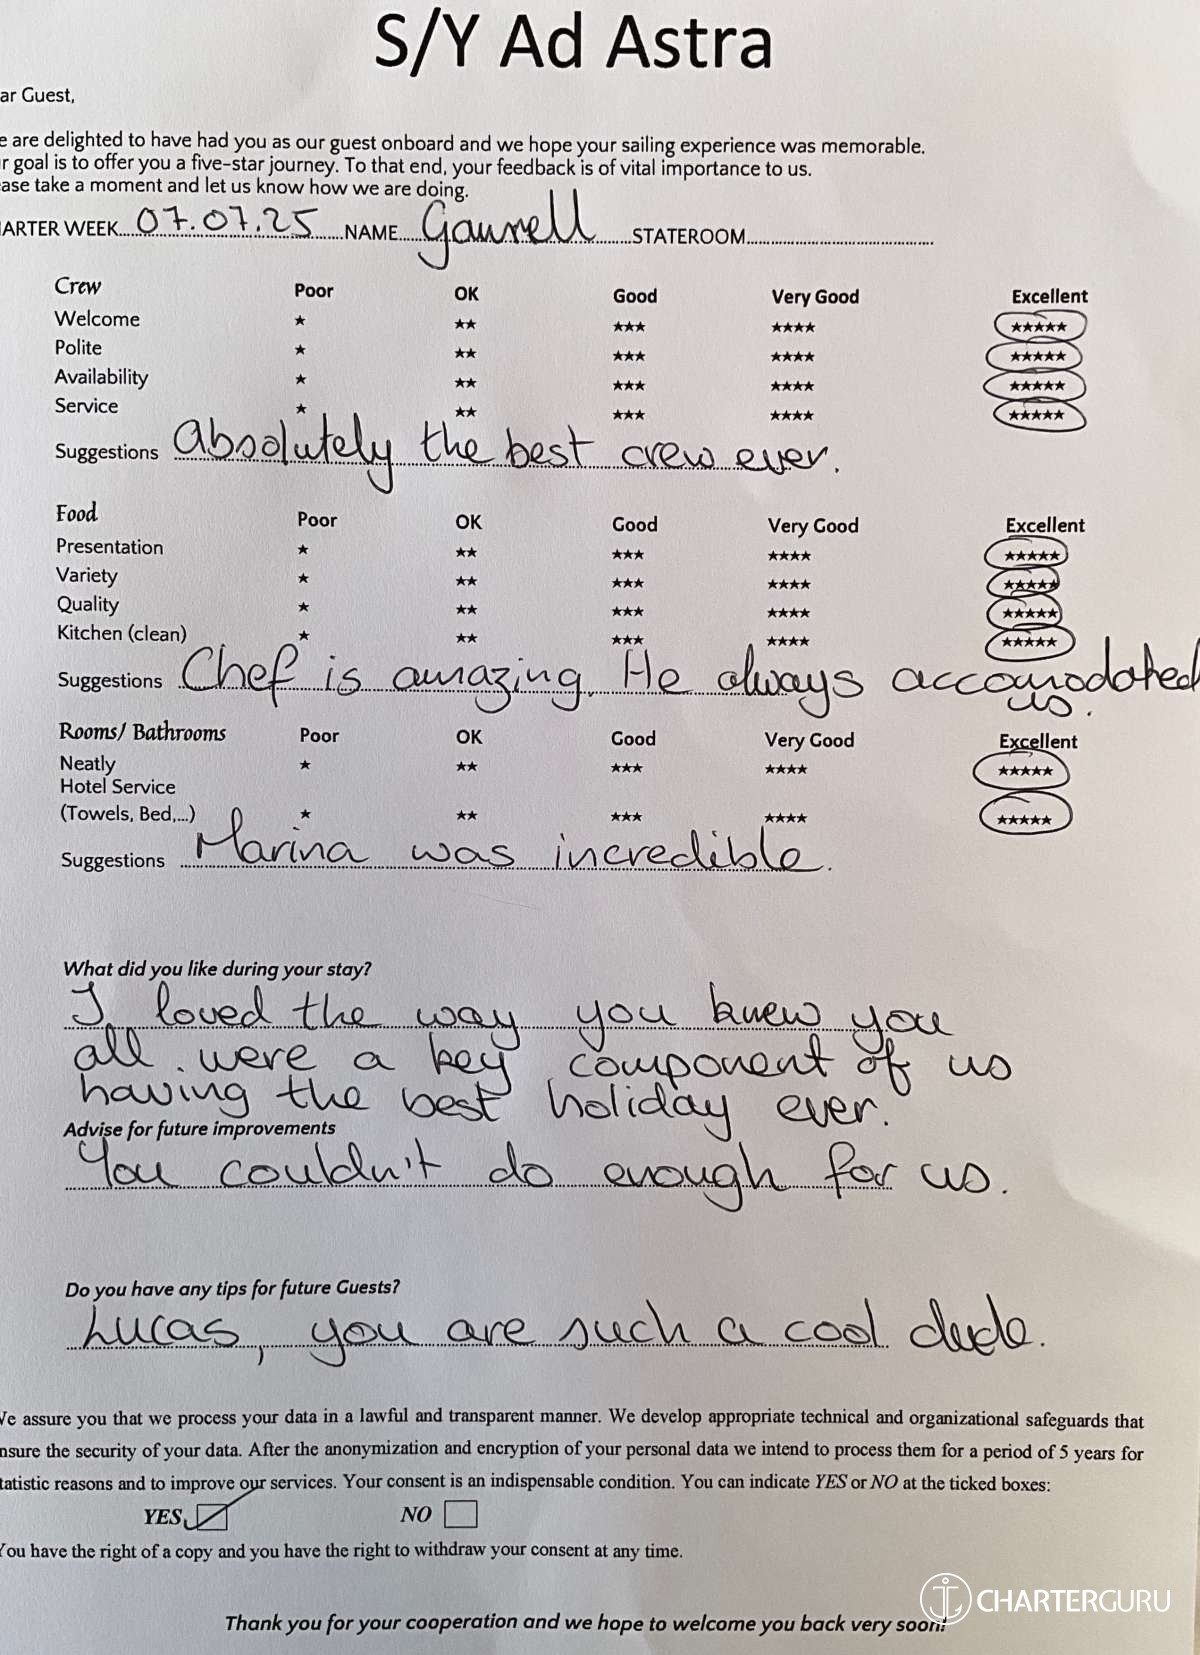 S/Y Ad Astra
ar Guest,
e are delighted to have had you as our guest onboard and we hope your sailing experience was memorable.
r goal is to offer you a five-star journey. To that end, your feedback is of vital importance to us.
ease take a moment and let us know how we are doing.
ARTER WEEK 07.07.25 NAME STATEROOM
Crew Poor OK Good Very Good Excellent
Welcome ★ ★★ ★★★ ★★★★ ★★★★★
Polite ★ ★★ ★★★ ★★★★ ★★★★★
Availability ★ ★★ ★★★ ★★★★ ★★★★★
Service ★ ★★ ★★★ ★★★★ ★★★★★
Suggestions Absolutely the best crew ever.
Food Poor OK Good Very Good Excellent
Presentation ★ ★★ ★★★ ★★★★ ★★★★★
Variety ★ ★★ ★★★ ★★★★ ★★★★★
Quality ★ ★★ ★★★ ★★★★ ★★★★★
Kitchen (clean) ★ ★★ ★★★ ★★★★ ★★★★★
Suggestions Chef is amazing. He always accomodated
us.
Rooms/ Bathrooms Poor OK Good Very Good Excellent
Neatly ★ ★★ ★★★ ★★★★ ★★★★★
Hotel Service
(Towels, Bed,...) ★ ★★ ★★★ ★★★★ ★★★★★
Suggestions Marina was incredible.
What did you like during your stay?
I loved the way you knew you
all were a key component of us
having the best holiday ever.
Advise for future improvements
You couldn't do enough for us.
Do you have any tips for future Guests?
Lucas, you are such a cool dude.
We assure you that we process your data in a lawful and transparent manner. We develop appropriate technical and organizational safeguards that
nsure the security of your data. After the anonymization and encryption of your personal data we intend to process them for a period of 5 years for
tatistic reasons and to improve our services. Your consent is an indispensable condition. You can indicate YES or NO at the ticked boxes:
YES NO
You have the right of a copy and you have the right to withdraw your consent at any time.
CHARTERGURU
Thank you for your cooperation and we hope to welcome you back very soon!